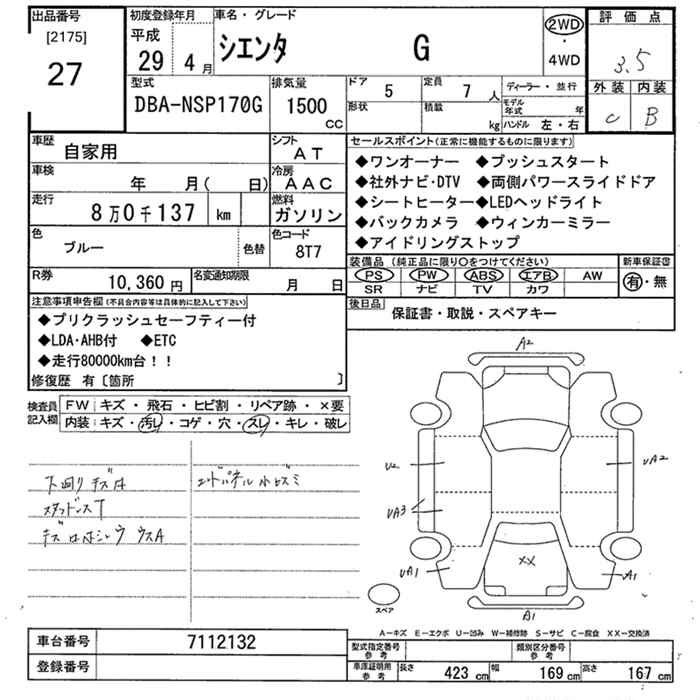 出品番号
[2175]
27
初度登録年月
平成
29 4月
車名・グレード
シエンタ G
2WD
・
4WD
評価点
3.5
外装 内装
C B
型式
DBA-NSP170G
排気量
1500
CC
ドア 5
定員 7 人
形状
積載 kg
ディーラー・並行
モデル年式 年
ハンドル 左・右
車歴 自家用
シフト AT
車検 年 月( 日)
冷房 AAC
走行 8万0千137 km
燃料 ガソリン
色 ブルー 色替
色コード 8T7
R券 10,360円
名変通知期限 月 日
セールスポイント(正常に機能するものに限ります)
◆ワンオーナー ◆プッシュスタート
◆社外ナビ・DTV ◆両側パワースライドドア
◆シートヒーター◆LEDヘッドライト
◆バックカメラ ◆ウィンカーミラー
◆アイドリングストップ
装備品(純正品に限り○をつけてください)
新車保証書
PS PW ABS エアB AW
SR ナビ TV カワ
有・無
後日品 保証書・取説・スペアキー
注意事項申告欄(不具合内容等は具体的に記入して下さい)
◆プリクラッシュセーフティー付
◆LDA・AHB付 ◆ETC
◆走行80000km台!!
修復歴 有〔箇所 〕
検査員記入欄
FW:キズ・飛石・ヒビ割・リペア跡・×要
内装:キズ・汚レ・コゲ・穴・スレ・キレ・破レ
下廻リ キズ
エンドパネル小ヒズミ
ウスA
A2
U2
UA2
UA3
XX
UA1
A1
A1
スペア
A-キズ E-エクボ U-凹み W-補修跡 S-サビ C-腐食 XX-交換済
車台番号 7112132
登録番号
型式指定番号 参考
類別区分番号 参考
車庫証明用 参考
長さ 423 cm 幅 169 cm 高さ 167 cm